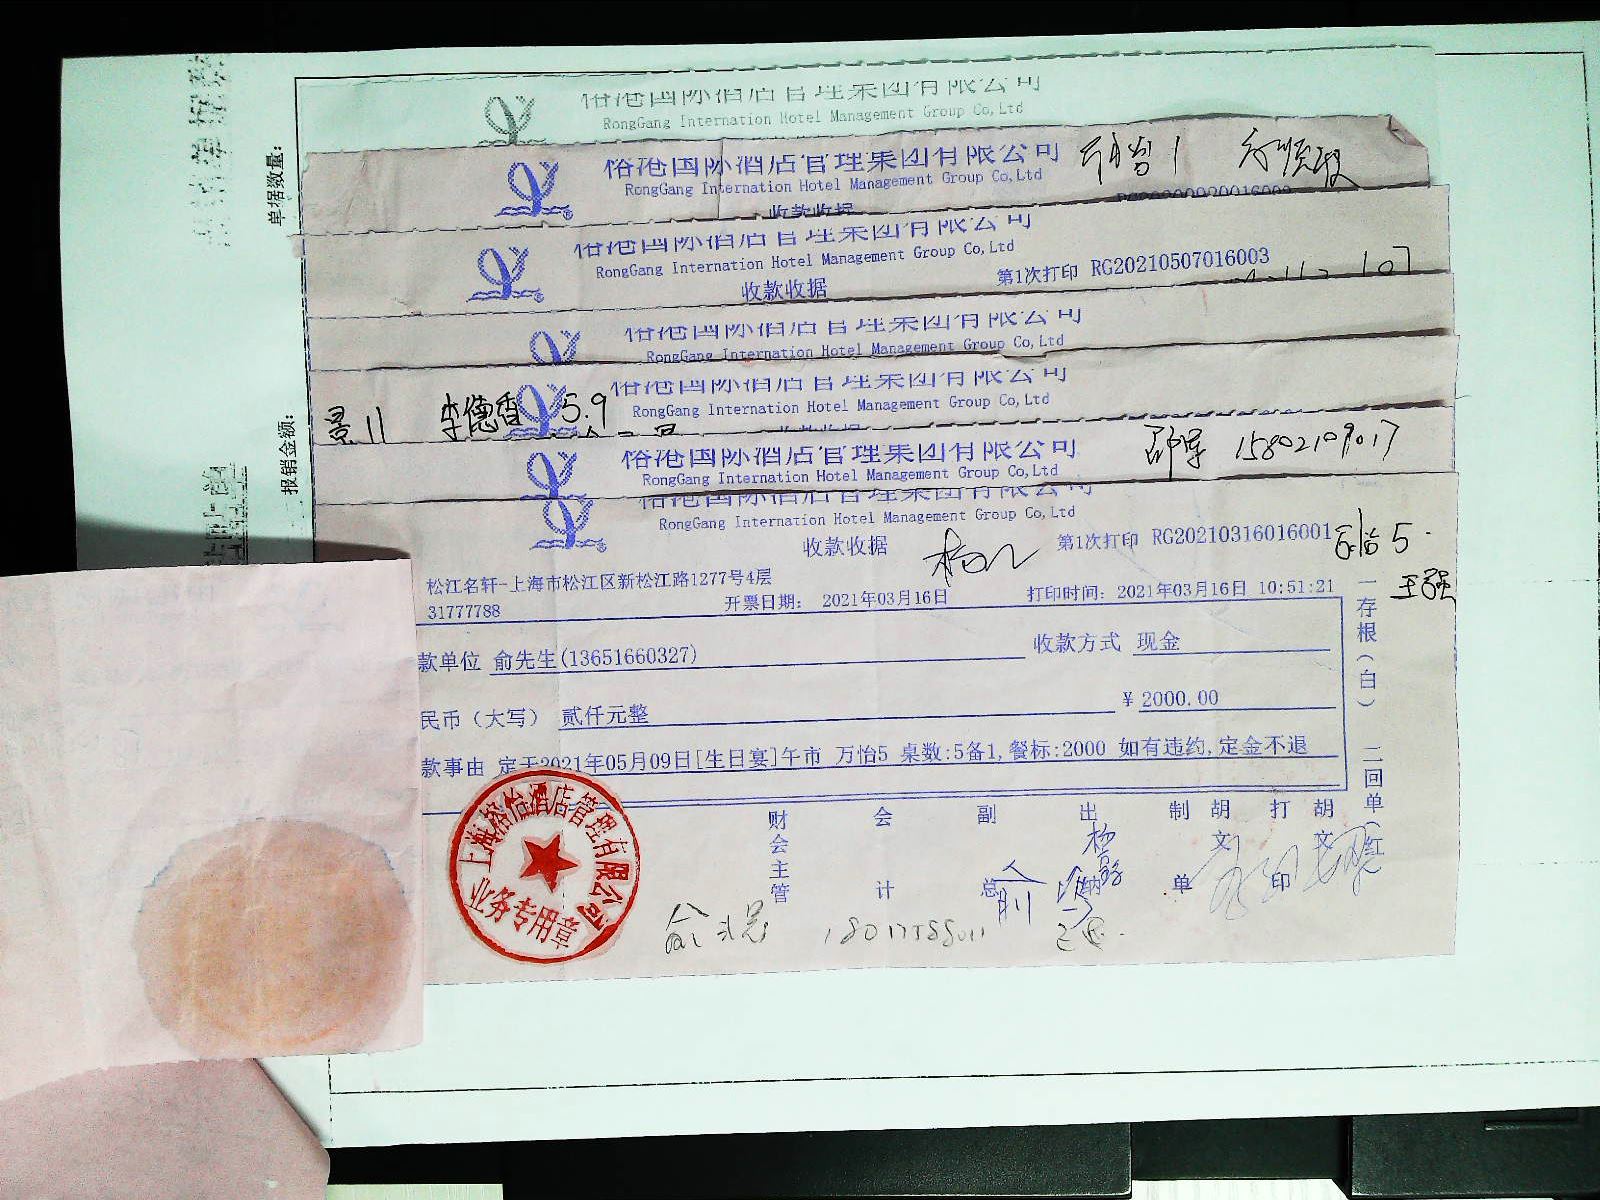 单据数量:
报销金额:
裕港国际酒店管理集团有限公司
RongGang Internation Hotel Management Group Co,Ltd
裕港国际酒店管理集团有限公司
RongGang Internation Hotel Management Group Co,Ltd
收款收据
裕港国际酒店管理集团有限公司
RongGang Internation Hotel Management Group Co,Ltd
收款收据 第1次打印 RG20210507016003
裕港国际酒店管理集团有限公司
RongGang Internation Hotel Management Group Co,Ltd
裕港国际酒店管理集团有限公司
景11 李德香 5.9 RongGang Internation Hotel Management Group Co,Ltd
收款收据
裕港国际酒店管理集团有限公司 15802109017
RongGang Internation Hotel Management Group Co,Ltd
裕港国际酒店管理集团有限公司
RongGang Internation Hotel Management Group Co,Ltd
收款收据 第1次打印 RG20210316016001
王强
松江名轩-上海市松江区新松江路1277号4层
31777788 开票日期: 2021年03月16日 打印时间: 2021年03月16日 10:51:21
款单位 俞先生(13651660327) 收款方式 现金
民币（大写） 贰仟元整 ¥ 2000.00
款事由 定于2021年05月09日[生日宴]午市 万怡5 桌数:5备1,餐标:2000 如有违约,定金不退
一存根(白) 二回单(红
财会主管 会计 副总 出纳 制单 胡文 打印 胡文
上海裕怡酒店管理有限公司
业务专用章
18017588011